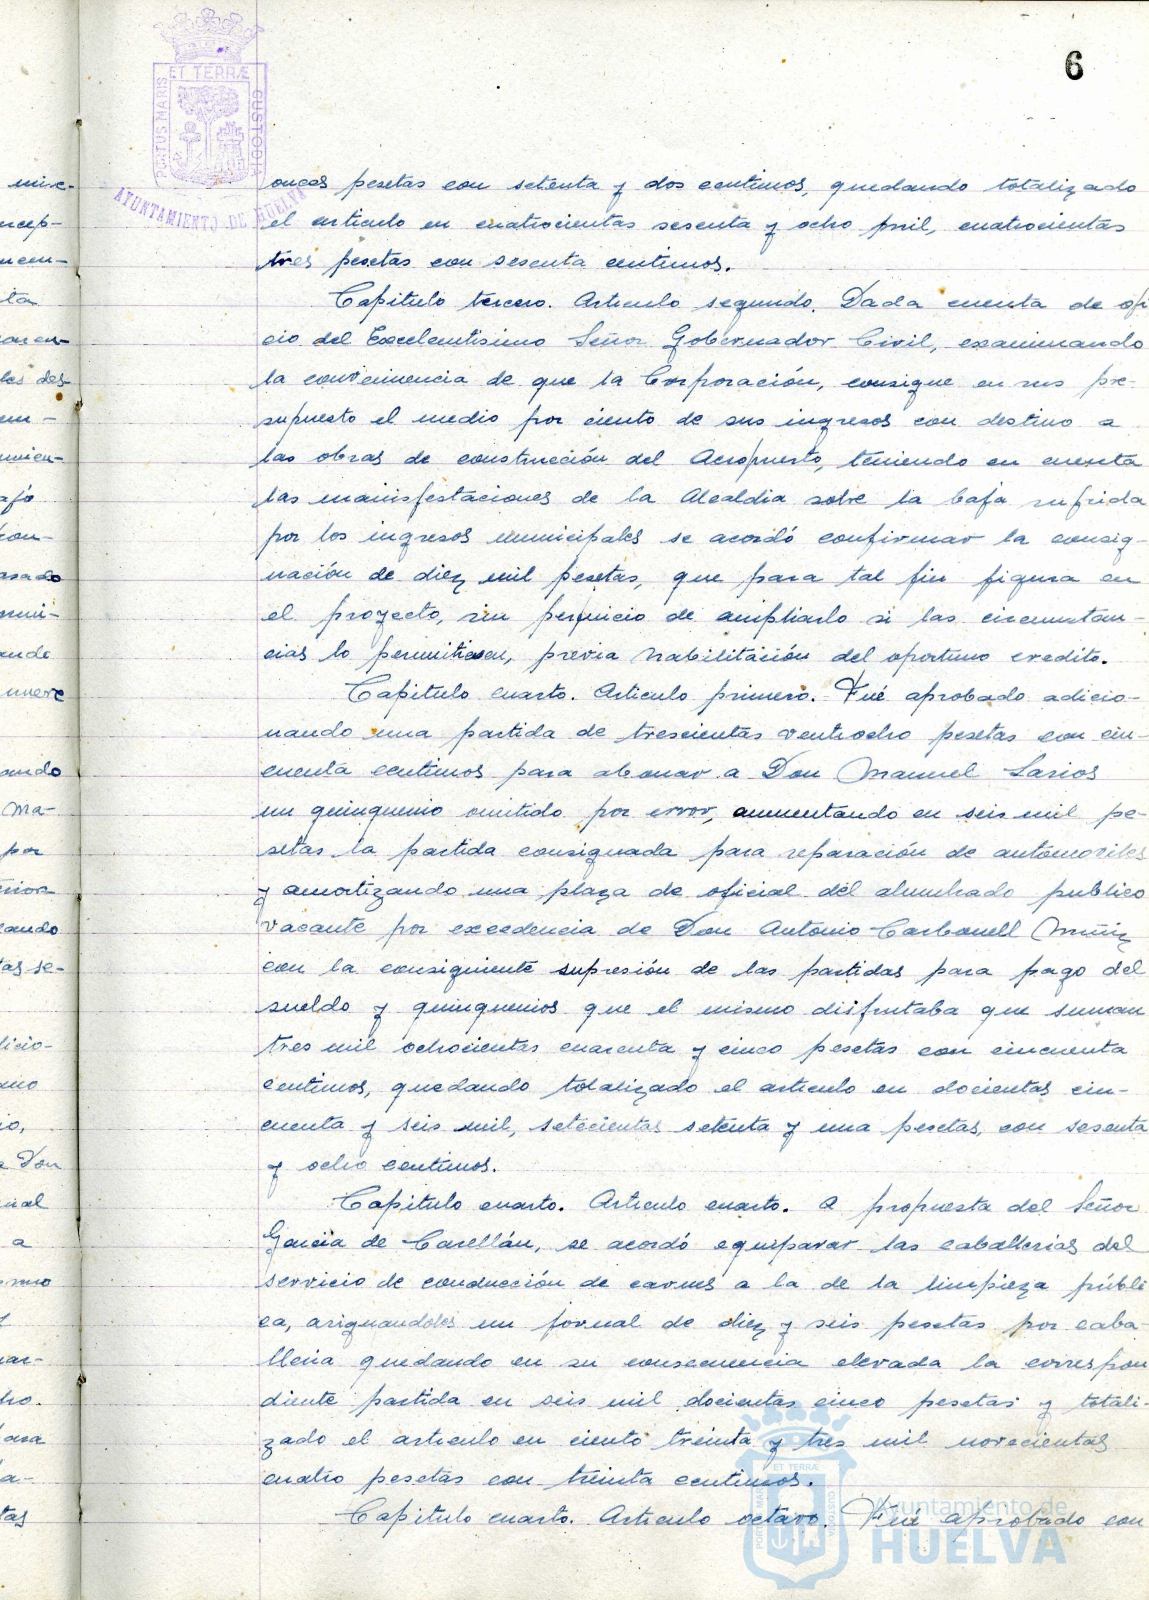 6
PORTUS MARIS ET TERRÆ CUSTODIA
AYUNTAMIENTO DE HUELVA
onces pesetas con setenta y dos centimos, quedando totalizado
el articulo en cuatrocientas sesenta y ocho mil, cuatrocientas
tres pesetas con sesenta centimos.
Capitulo tercero. Articulo segundo. Dada cuenta de ofi
cio del Excelentisimo Señor Gobernador Civil, examinando
la conveniencia de que la Corporación, consigne en sus pre-
supuesto el medio por ciento de sus ingresos con destino a
las obras de construcción del Aeropuerto, teniendo en cuenta
las manisfestaciones de la Alcaldia sobre la baja sufrida
por los ingresos municipales se acordó confirmar la consig-
nación de diez mil pesetas, que para tal fin figura en
el proyecto, sin perjuicio de ampliarlo si las circunstan-
cias lo permitiesen, previa habilitación del oportuno credito.
Capitulo cuarto. Articulo primero. Fué aprobado adicio-
nando una partida de trescientas ventiocho pesetas con cin-
cuenta centimos para abonar a Don Manuel Larios
un quinquenio omitido por error, aumentando en seis mil pe-
setas la partida consignada para reparación de automoviles
y amortizando una plaza de oficial del alumbrado publico
vacante por excedencia de Don Antonio Carbonell Muñiz
con la consiguiente supresión de las partidas para pago del
sueldo y quinquenios que el mismo disfrutaba que suman
tres mil ochocientas cuarenta y cinco pesetas con cincuenta
centimos, quedando totalizado el articulo en docientas cin-
cuenta y seis mil, setecientas setenta y una pesetas, con sesenta
y ocho centimos.
Capitulo cuarto. Articulo cuarto. A propuesta del Señor
Garcia de Carellán, se acordó equiparar las caballerias del
servicio de conducción de carnes a la de la limpieza públi
ca, asignandoles un jornal de diez y seis pesetas por caba-
lleria quedando en su consecuencia elevada la correspon
diente partida en seis mil docientas cinco pesetas y totali-
zado el articulo en ciento treinta y tres mil novecientas
cuatro pesetas con treinta centimos.
Capitulo cuarto. Articulo octavo. Fué aprobado con
Ayuntamiento de
HUELVA